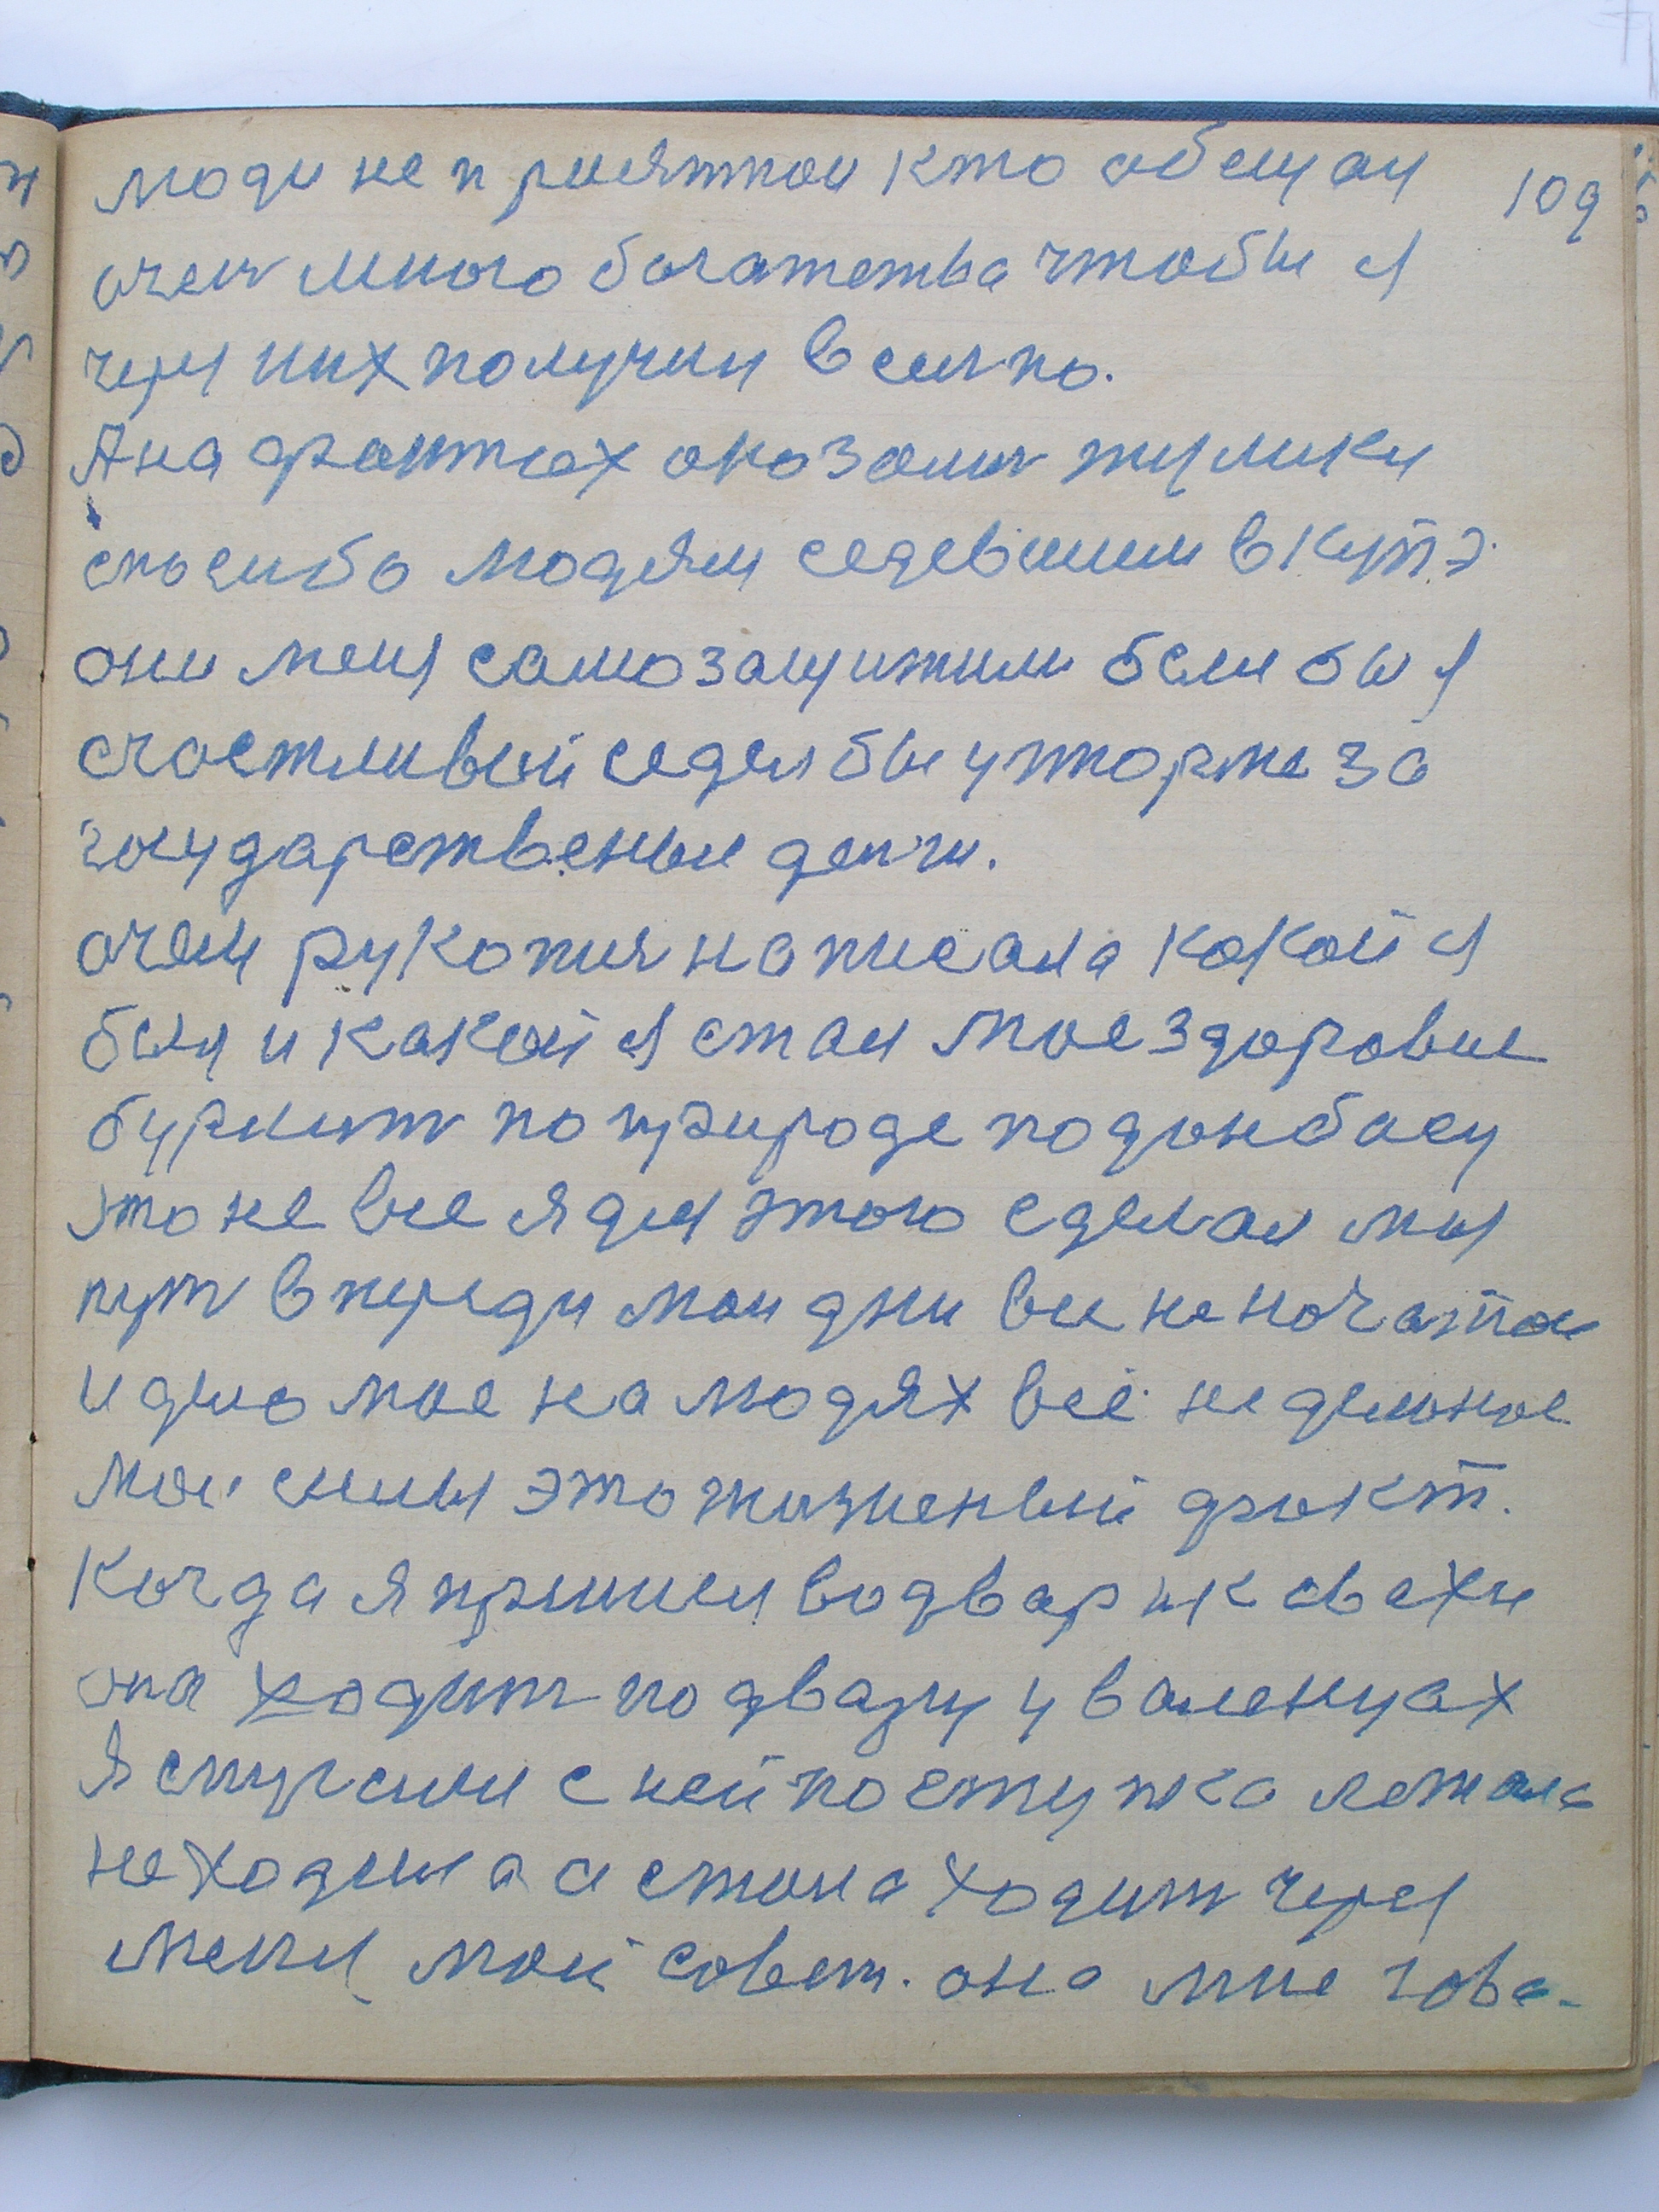 люди не приятнои кто обещал 109
очень много богатства чтобы я
через них получил всилпо.
А на фронтах оказалис жулики
спосибо людям седевшим в купэ.
они меня само защижили бели бы я
счастливый седел бы у тюрме за
государственые денги.
очем рукопис написала какой я
был и какой я стал мое здоровие
буржит по природе по донбасу
это не все я для этого сделал мы
пут впереди мои дни все не початои
и дило мое на людях всё не делоное
мои силы это жизненый факт.
Когда я пришел во двор ик свахи
она ходит по двару у валенцах
Я спугалси с ней постужка лежала
не ходила а стала ходит через
меня мой совет. она мне гова-